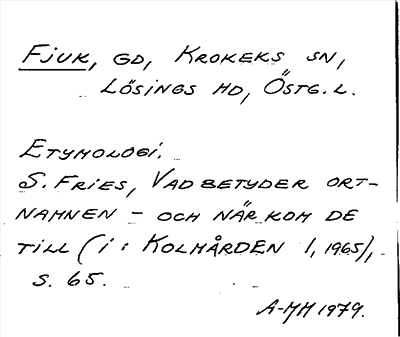 FJUK, GD, KROKEKS SN,
LÖSINGS HD, ÖSTG. L.
ETYMOLOGI.
S. FRIES, VAD BETYDER ORT-
NAMNEN - OCH NÄR KOM DE
TILL (i: KOLMÅRDEN 1, 1965),
S. 65.
A-MH 1979.